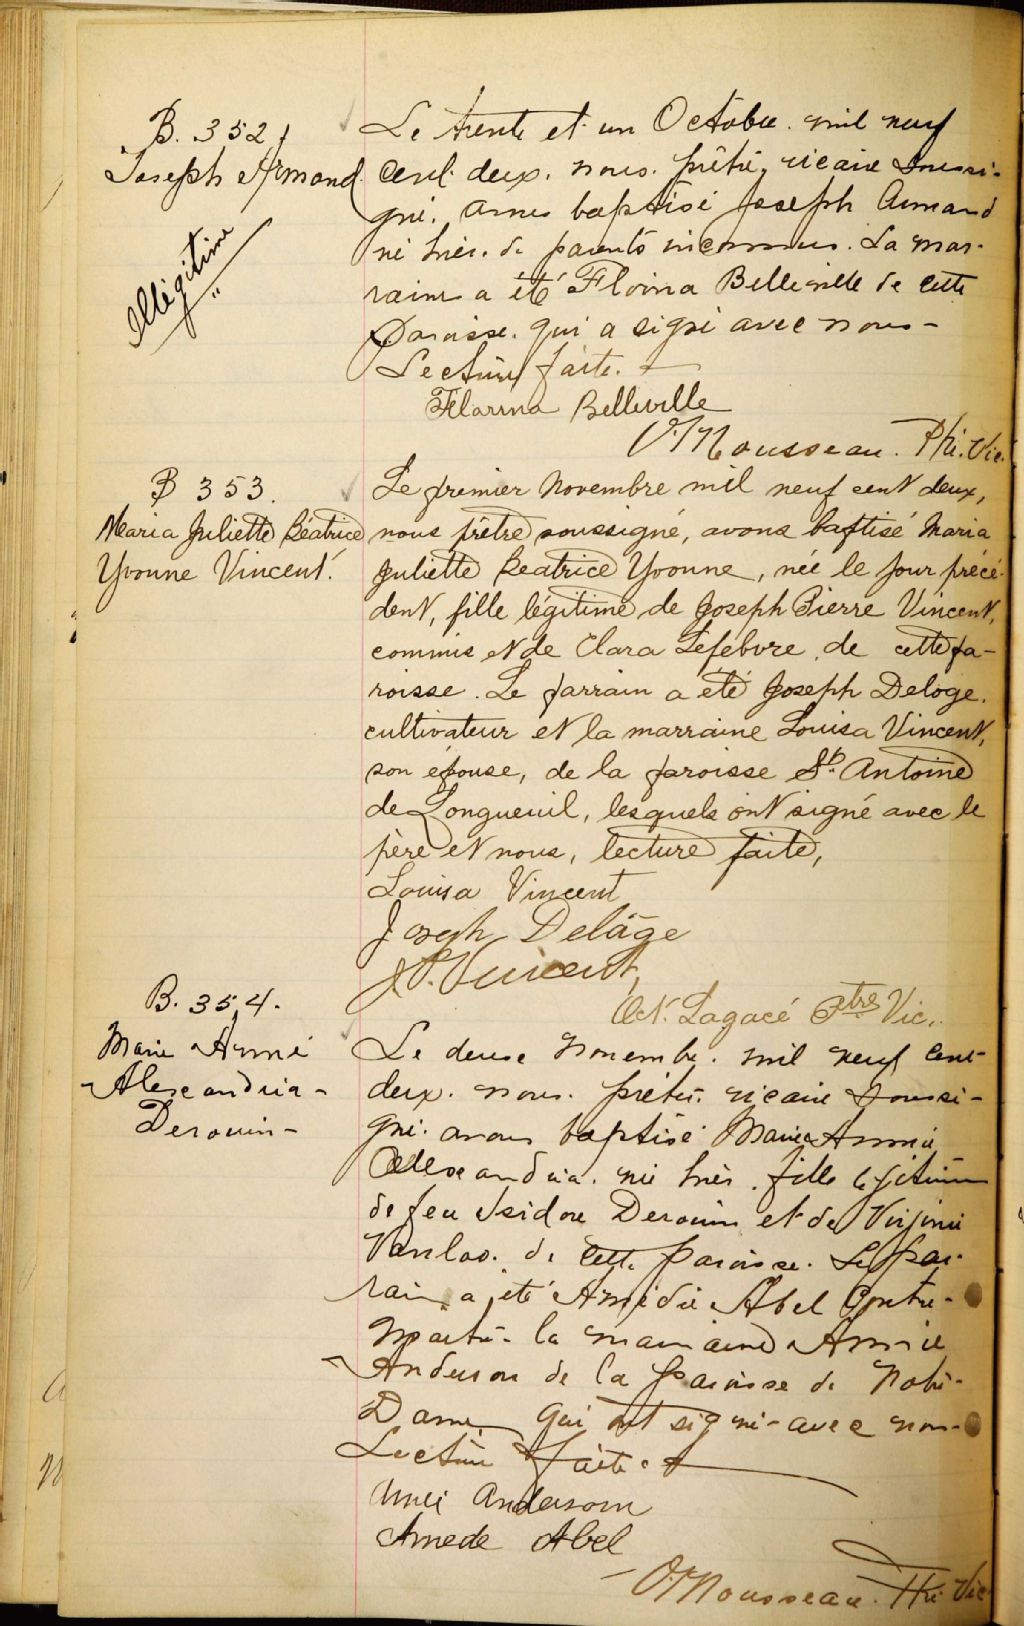 B. 352
Joseph Armand
Illégitime
Le trente et un Octobre mil neuf
cent deux. nous. prêtre, vicaire soussi-
gné. avons baptisé Joseph Armand
né hier. de parents inconnus. La mar-
raine a été Florina Belleville de cette
Paroisse. qui a signé avec nous-
Lecture faite.
Florina Belleville
O. Mousseau. Ptre. Vic.
B 353.
Maria Juliette Béatrice
Yvonne Vincent.
Le premier Novembre mil neuf cent deux,
nous prêtre soussigné, avons baptisé Maria
Juliette Beatrice Yvonne, née le jour précé-
dent, fille légitime de Joseph Pierre Vincent,
commis et de Clara Lefebvre, de cette pa-
roisse. Le parrain a été Joseph Deloge,
cultivateur et la marraine Louisa Vincent,
son épouse, de la paroisse St. Antoine
de Longueuil, lesquels ont signé avec le
père et nous, lecture faite,
Louisa Vincent
Joseph Delâge
J. P. Vincent,
Oct. Lagacé Ptre Vic.
B. 354.
Marie Annie
Alexandria-
Derouin-
Le deux Novembre. mil neuf cent
deux. nous. prêtre. vicaire soussi-
gné. avons baptisé Marie Annie
Alexandria. née hier. fille légitime
de feu Isidore Derouin et de Virginie
de cette Paroisse. Le par-
rain a été Amédée Abel Contre-
Maitre- la marraine Annie
Anderson de la Paroisse de Notre-
Dame qui ont signé avec nous-
Lecture faite.
Annie Anderson
Amede Abel
O. Mousseau. Ptre Vic